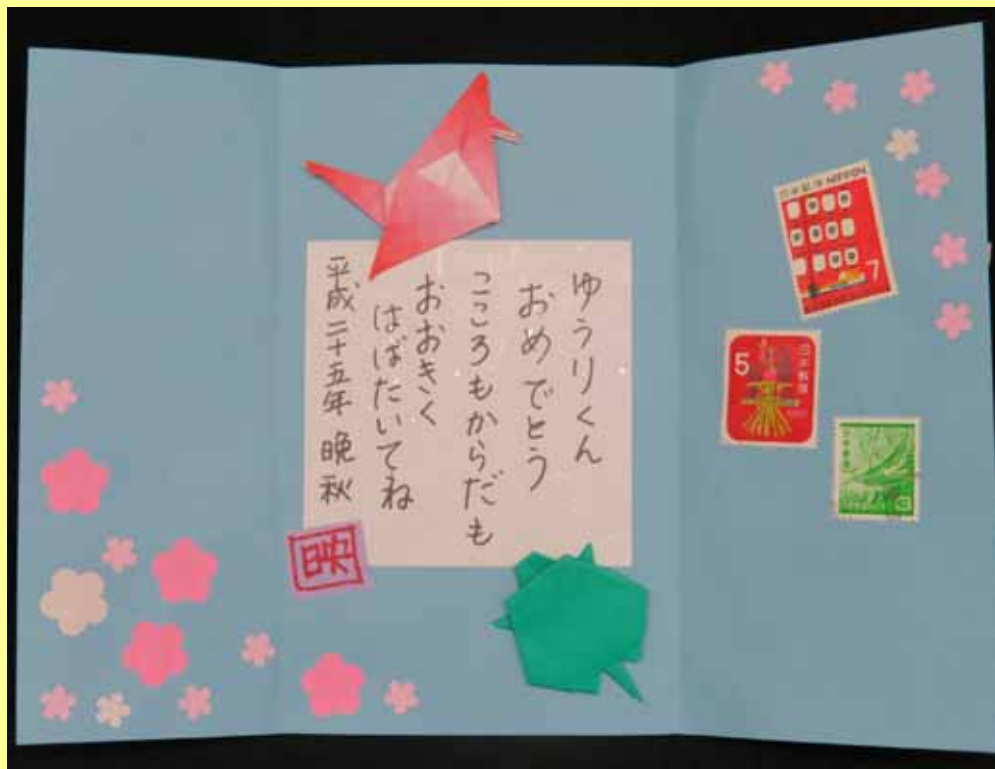 ゆうりくん
おめでとう
こころもからだも
おおきく
はばたいてね
平成二十五年 晩秋
NIPPON
7
5
日本郵便
日本郵便
3